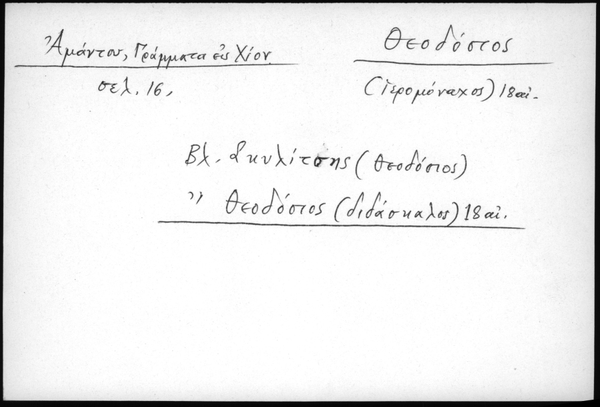 Ἀμάντου, Γράμματα εἰς Χίον
σελ. 16,
Θεοδόσιος
(ἱερομόναχος) 18 αἰ.
Βλ. Σκυλίτσης (Θεοδόσιος)
〃 Θεοδόσιος (διδάσκαλος) 18 αἰ.